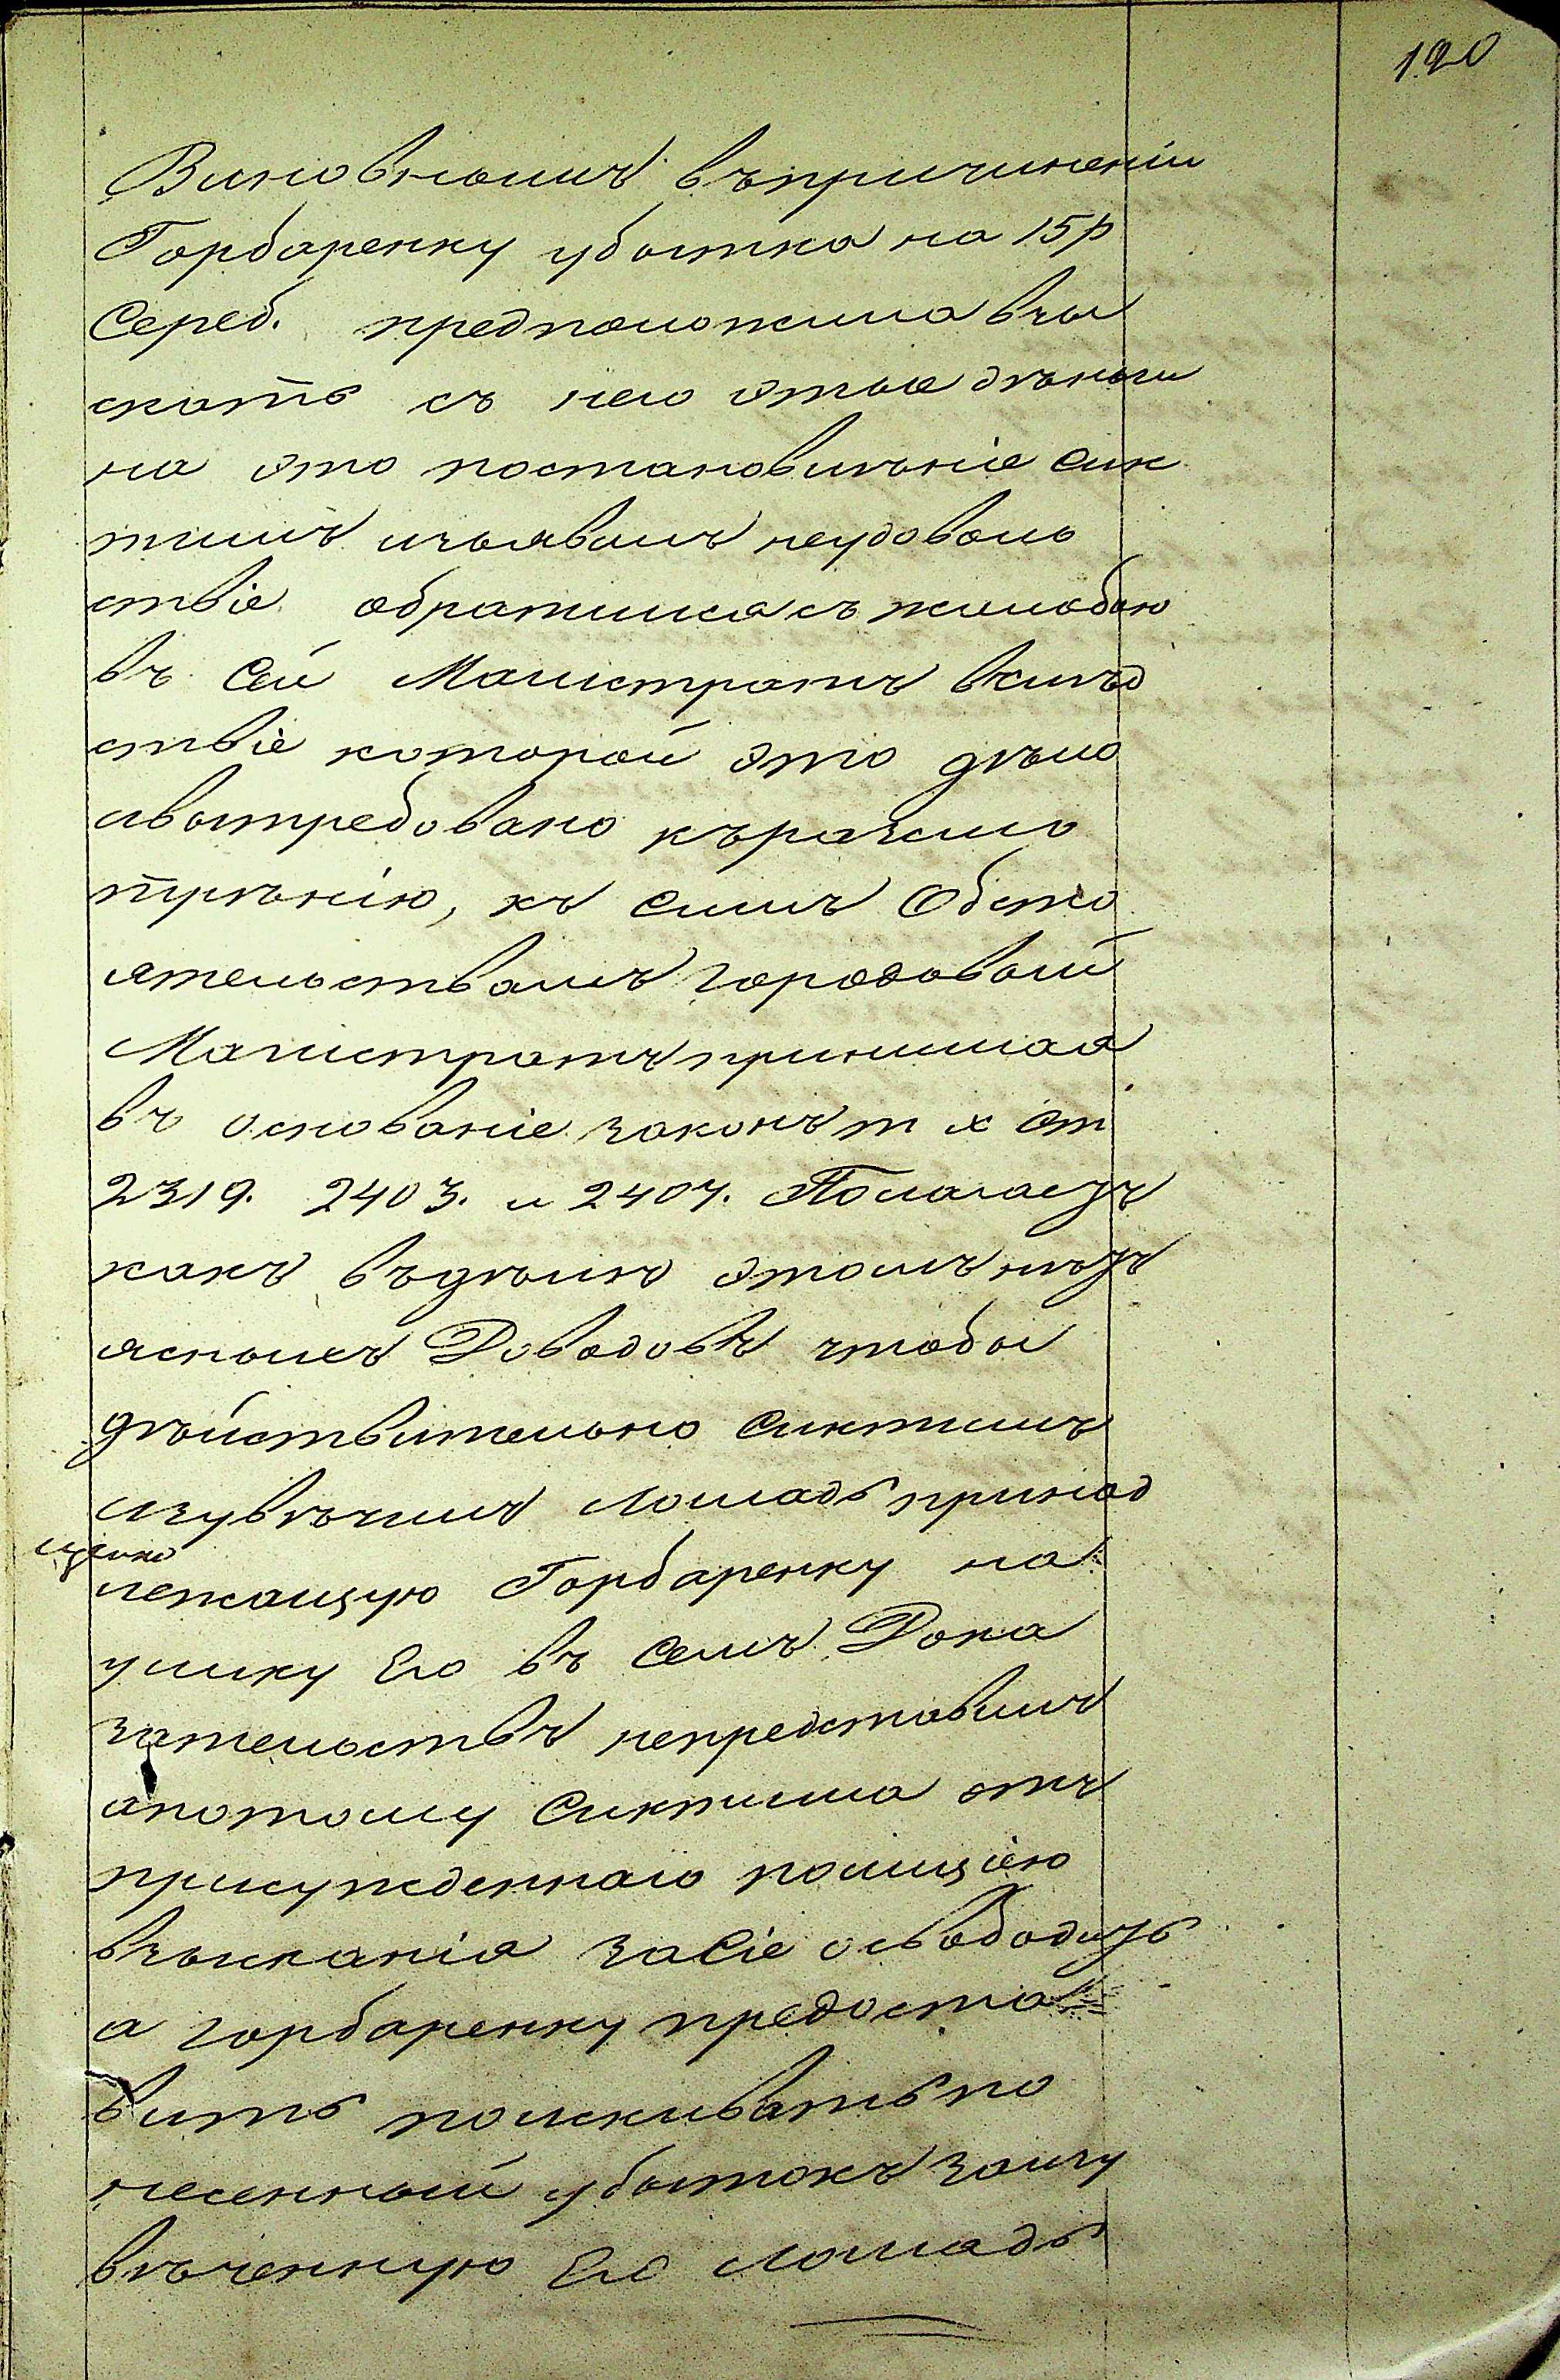 120
Виновнымъ въпричиненіи
Горбаренку убытка на 15р
Сереб. предположила взы
скать съ него этые дѣньги
на это постановилѣніе Сик
тимъ изъявылъ неудоволь
ствіе обратился съ жалобою
въ Сей Магистратъ вслѣд
ствіе которой это дѣло
ивытребовано къразсмо
трѣнію, къ симъ Обсто
ятельствамъ городовый
Магистратъ принимая
въ основаніе законъ т х ст
2319. 2403. и 2404. Полагаетъ
какъ въдѣлю этомъ нѣтъ
ясныхъ Доводовъ чтобы
дѣйствительно Сиктимъ
изувѣчилъ лошадь принад
лежащую Горбаренку на
улику Его въ Семъ Дока
зательствъ непредставилъ
апотому Сиктима отъ
присужденнаго полиціею
взысканія засіе освободить
а горбаренку предоста=
вить поискивать по
несенный убытокъ заизу
вѣченную Его лошадь